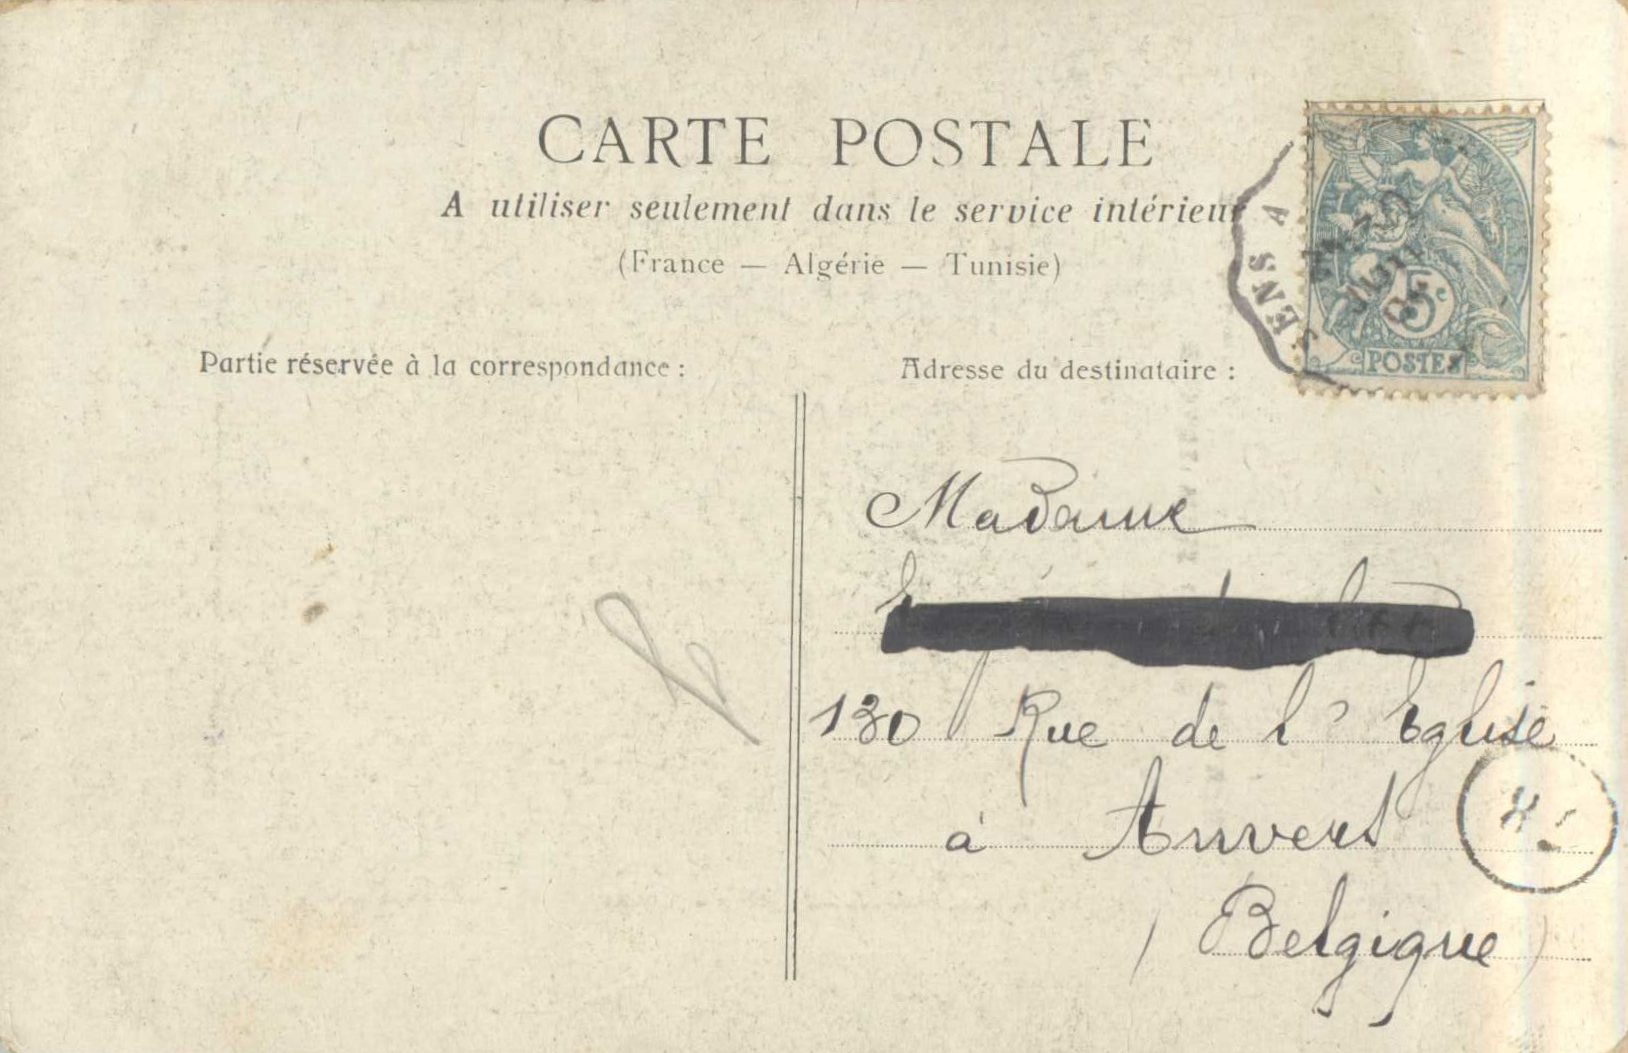 CARTE POSTALE
A utiliser seulement dans le service intérieur
(France — Algérie — Tunisie)
Partie réservée à la correspondance :
Adresse du destinataire :
SENS A
5c
POSTES
Madame
130 Rue de l'Eglise
à Anvers
(Belgique)